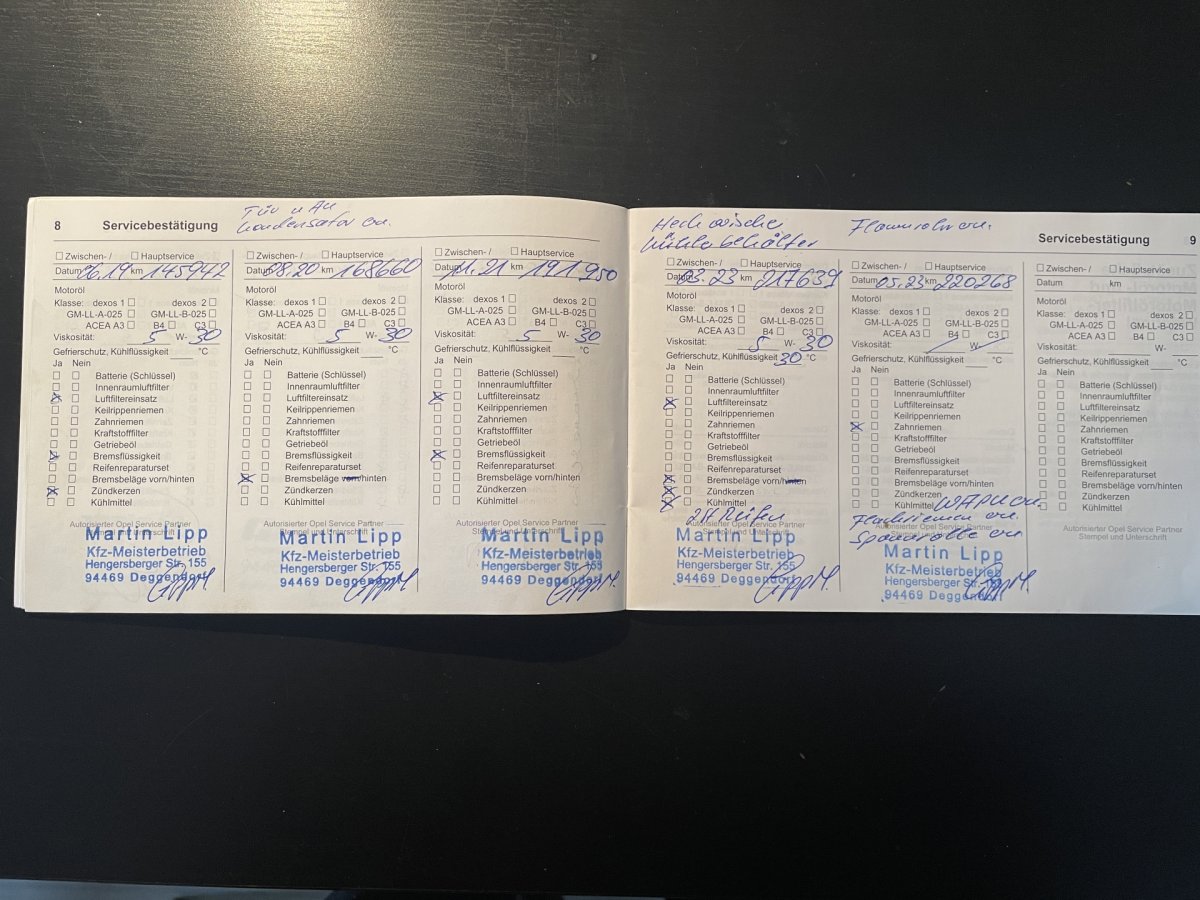 8 Servicebestätigung
Tüv u AU
Kondensator ern.
Zwischen-/ Hauptservice
Datum 06.19 km 145942
Motoröl
Klasse: dexos 1 dexos 2
GM-LL-A-025 GM-LL-B-025
ACEA A3 B4 C3
Viskosität: 5 W- 30
Gefrierschutz, Kühlflüssigkeit °C
Ja Nein
Batterie (Schlüssel)
Innenraumluftfilter
Luftfiltereinsatz
Keilrippenriemen
Zahnriemen
Kraftstofffilter
Getriebeöl
Bremsflüssigkeit
Reifenreparaturset
Bremsbeläge vorn/hinten
Zündkerzen
Kühlmittel
Autorisierter Opel Service Partner
Stempel und Unterschrift
Martin Lipp
Kfz-Meisterbetrieb
Hengersberger Str. 155
94469 Deggendorf
Zwischen-/ Hauptservice
Datum 08.20 km 168660
Motoröl
Klasse: dexos 1 dexos 2
GM-LL-A-025 GM-LL-B-025
ACEA A3 B4 C3
Viskosität: 5 W- 30
Gefrierschutz, Kühlflüssigkeit °C
Ja Nein
Batterie (Schlüssel)
Innenraumluftfilter
Luftfiltereinsatz
Keilrippenriemen
Zahnriemen
Kraftstofffilter
Getriebeöl
Bremsflüssigkeit
Reifenreparaturset
Bremsbeläge vorn/hinten
Zündkerzen
Kühlmittel
Autorisierter Opel Service Partner
Stempel und Unterschrift
Martin Lipp
Kfz-Meisterbetrieb
Hengersberger Str. 155
94469 Deggendorf
Zwischen-/ Hauptservice
Datum 11.21 km 191950
Motoröl
Klasse: dexos 1 dexos 2
GM-LL-A-025 GM-LL-B-025
ACEA A3 B4 C3
Viskosität: 5 W- 30
Gefrierschutz, Kühlflüssigkeit °C
Ja Nein
Batterie (Schlüssel)
Innenraumluftfilter
Luftfiltereinsatz
Keilrippenriemen
Zahnriemen
Kraftstofffilter
Getriebeöl
Bremsflüssigkeit
Reifenreparaturset
Bremsbeläge vorn/hinten
Zündkerzen
Kühlmittel
Autorisierter Opel Service Partner
Stempel und Unterschrift
Martin Lipp
Kfz-Meisterbetrieb
Hengersberger Str. 155
94469 Deggendorf
Servicebestätigung 9
Heckwischer
behälter
Zwischen-/ Hauptservice
Datum 03.23 km 217639
Motoröl
Klasse: dexos 1 dexos 2
GM-LL-A-025 GM-LL-B-025
ACEA A3 B4 C3
Viskosität: 5 W- 30
Gefrierschutz, Kühlflüssigkeit 30 °C
Ja Nein
Batterie (Schlüssel)
Innenraumluftfilter
Luftfiltereinsatz
Keilrippenriemen
Zahnriemen
Kraftstofffilter
Getriebeöl
Bremsflüssigkeit
Reifenreparaturset
Bremsbeläge vorn/hinten
Zündkerzen
Kühlmittel
Reifen
Autorisierter Opel Service Partner
Stempel und Unterschrift
Martin Lipp
Kfz-Meisterbetrieb
Hengersberger Str. 155
94469 Deggendorf
Flammrohr ern.
Zwischen-/ Hauptservice
Datum 05.23 km 220268
Motoröl
Klasse: dexos 1 dexos 2
GM-LL-A-025 GM-LL-B-025
ACEA A3 B4 C3
Viskosität: W-
Gefrierschutz, Kühlflüssigkeit °C
Ja Nein
Batterie (Schlüssel)
Innenraumluftfilter
Luftfiltereinsatz
Keilrippenriemen
Zahnriemen
Kraftstofffilter
Getriebeöl
Bremsflüssigkeit
Reifenreparaturset
Bremsbeläge vorn/hinten
Zündkerzen
Kühlmittel WAPU ern.
Flachriemen ern.
Spannrolle ern
Martin Lipp
Kfz-Meisterbetrieb
Hengersberger Str. 155
94469 Deggendorf
Zwischen-/ Hauptservice
Datum km
Motoröl
Klasse: dexos 1 dexos 2
GM-LL-A-025 GM-LL-B-025
ACEA A3 B4 C3
Viskosität: W-
Gefrierschutz, Kühlflüssigkeit °C
Ja Nein
Batterie (Schlüssel)
Innenraumluftfilter
Luftfiltereinsatz
Keilrippenriemen
Zahnriemen
Kraftstofffilter
Getriebeöl
Bremsflüssigkeit
Reifenreparaturset
Bremsbeläge vorn/hinten
Zündkerzen
Kühlmittel
Autorisierter Opel Service Partner
Stempel und Unterschrift